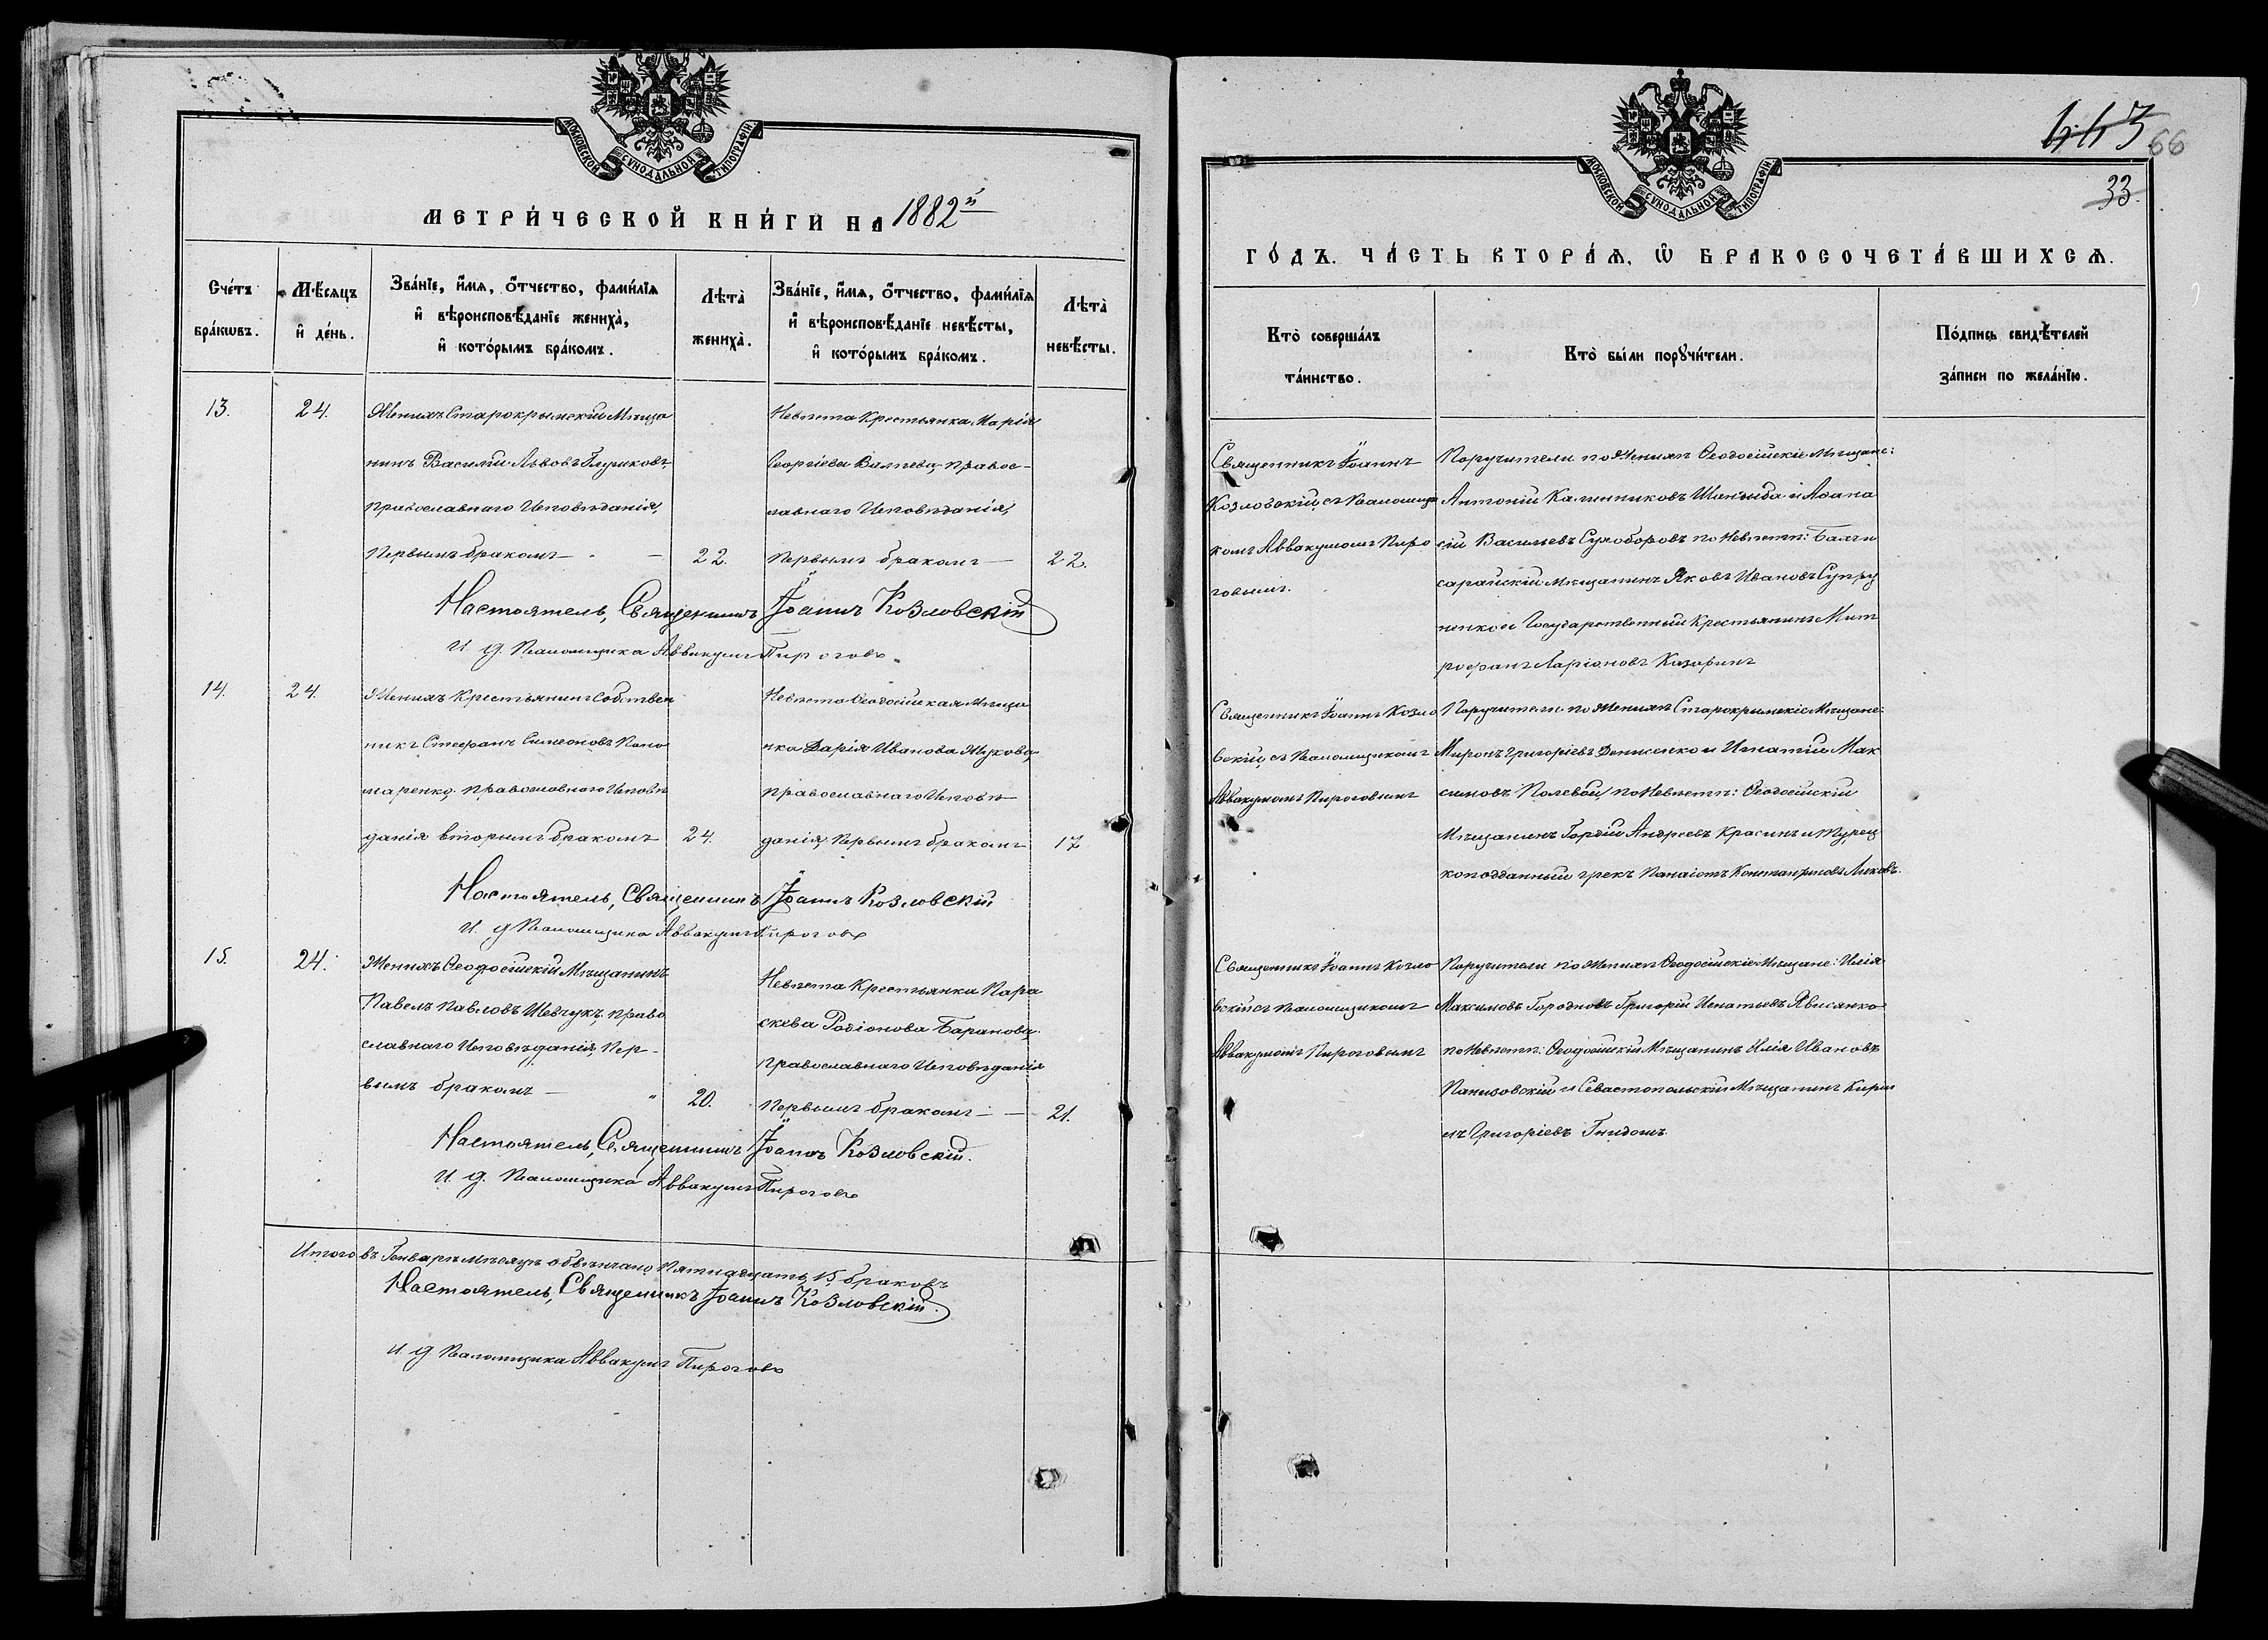 МОСКОВСКОЙ СѴНОДАЛЬНОЙ ТИПОГРАФІИ
МЕТРИ́ЧЕСКОЙ КНИ́ГИ НА 1882й
Сче́тъ бра́кωвъ.
Мѣ́сяцъ и҆ де́нь.
Зва́нїе, и҆́мя, ѻ҆́тчество, фами́лїя
и҆ вѣроисповѣ́данїе жениха̀,
и҆ кото́рымъ бра́комъ.
Лѣта̀ жениха̀.
Зва́нїе, и҆́мя, ѻ҆́тчество, фами́лїя
и҆ вѣроисповѣ́данїе невѣ́сты,
и҆ кото́рымъ бра́комъ.
Лѣта̀ невѣ́сты.
13.
24.
Женихъ Старокрымскій Мѣща
нинъ Василій Львовъ Глушковъ,
Православнаго Исповѣданія,
Первымъ бракомъ — 22.
Невѣста Крестьянка Марія
Георгіева Валѣева, Правос-
лавнаго Исповѣданія,
Первымъ бракомъ — 22.
Настоятель, Священникъ Іоаннъ Козловскій
И. д. Псаломщика Аввакумъ Пироговъ.
14.
24.
Женихъ Крестьянинъ Собствен
никъ Стефанъ Симеоновъ Поно
маренко, православнаго Исповѣ
данія вторымъ бракомъ 24.
Невѣста Ѳеодосійская Мѣща
нка Дарія Иванова Жукова,
православнаго Исповѣ
данія, Первымъ бракомъ 17
Настоятель, Священникъ Іоаннъ Козловскій
И. д. Псаломщика Аввакумъ Пироговъ
15.
24.
Женихъ Ѳеодосійскій Мѣщанинъ
Павелъ Павловъ Шевчукъ, право
славнаго Исповѣданія, Пер-
вымъ бракомъ — " 20.
Невѣста Крестьянка Пара
скева Родіонова Баранова,
Православнаго Исповѣданія
Первымъ бракомъ — 21.
Настоятель, Священникъ Іоаннъ Козловскій.
И. д. Псаломщика Аввакумъ Пироговъ
Итого въ Генварѣ мѣсяцѣ обвѣнчано Пятнадцать, 15, браковъ
Настоятель, Священникъ Іоаннъ Козловскій.
И. д. Псаломщика Аввакумъ Пироговъ
МОСКОВСКОЙ СѴНОДАЛЬНОЙ ТИПОГРАФІИ
66
33.
ГО́ДЪ. ЧА́СТЬ ВТОРА́Ѧ, Ѽ БРАКОСОЧЕТА́ВШИХСѦ.
Кто̀ соверша́лъ
та́инство.
Кто̀ бы́ли порꙋчи́тели.
По́дпись свидѣ́телей
за́писи по жела́нїю.
Священникъ Іоаннъ
Козловскій, съ Псаломщи
комъ Аввакумомъ Пиро
говымъ.
Поручители по Женихѣ Ѳеодосійскіе Мѣщане:
Антоній Калинниковъ и Аѳана
сій Васильевъ Сухоборовъ по Невѣстѣ: Бахчи
сарайскій мѣщанинъ Яковъ Ивановъ Супру
ненко и Государственный Крестьянинъ Мит
рофанъ Ларіоновъ
Священникъ Іоаннъ Козло
вскій, съ Псаломщикомъ
Аввакумомъ Пироговымъ
Поручители по Женихѣ Старокрымскіе Мѣщане:
Миронъ Григоріевъ Денисенко и Игнатій Мак
симовъ Полевой, по Невѣстѣ: Ѳеодосійскій
Мѣщанинъ Гордій Андреевъ Красинъ и Турец
коподданный грекъ Панаіотъ Константиновъ Ликовъ.
Священникъ Іоаннъ Козло
вскій съ Псаломщикомъ
Аввакумомъ Пироговымъ
Поручители по Женихѣ Ѳеодосійскіе Мѣщане: Илія
Максимовъ Григорій Игнатьевъ
по Невѣстѣ: Ѳеодосійскій Мѣщанинъ Илія Ивановъ
и Севастопольскій Мѣщанинъ Кирил
лъ Григоріевъ